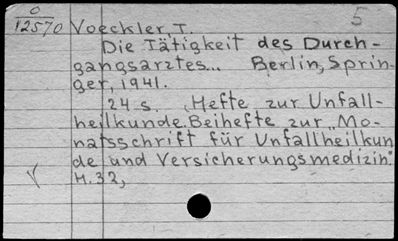 5
0
12570 Voeckler, T.
Die Tätigkeit des Durch-
gangsarztes... Berlin, Sprin-
ger, 1941.
24 s. (Hefte zur Unfall-
heilkunde. Beihefte zur „Mo-
natsschrift für Unfallheilkun
de und Versicherungsmedizin".
H. 32,